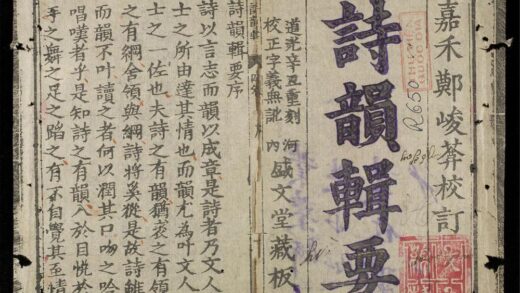 嘉禾鄭峻葊校訂
R.650
詩韻輯要
道光辛丑重刻 河
校正字義無訛 內
盛文堂藏板
詩韻輯要序
詩以言志而韻以成章是詩者乃文人
士之所由達其情也而韻尤為叶文人
士之一佐也夫詩之有韻猶衣之有領
之有綱舍領與綱詩將奚從是故詩雖
而韻不叶讀之者何以潤其口吻之哈
唱嘆者乎是知詩之有韻入於目悅於
手之舞之足之蹈之有不自覺其至情